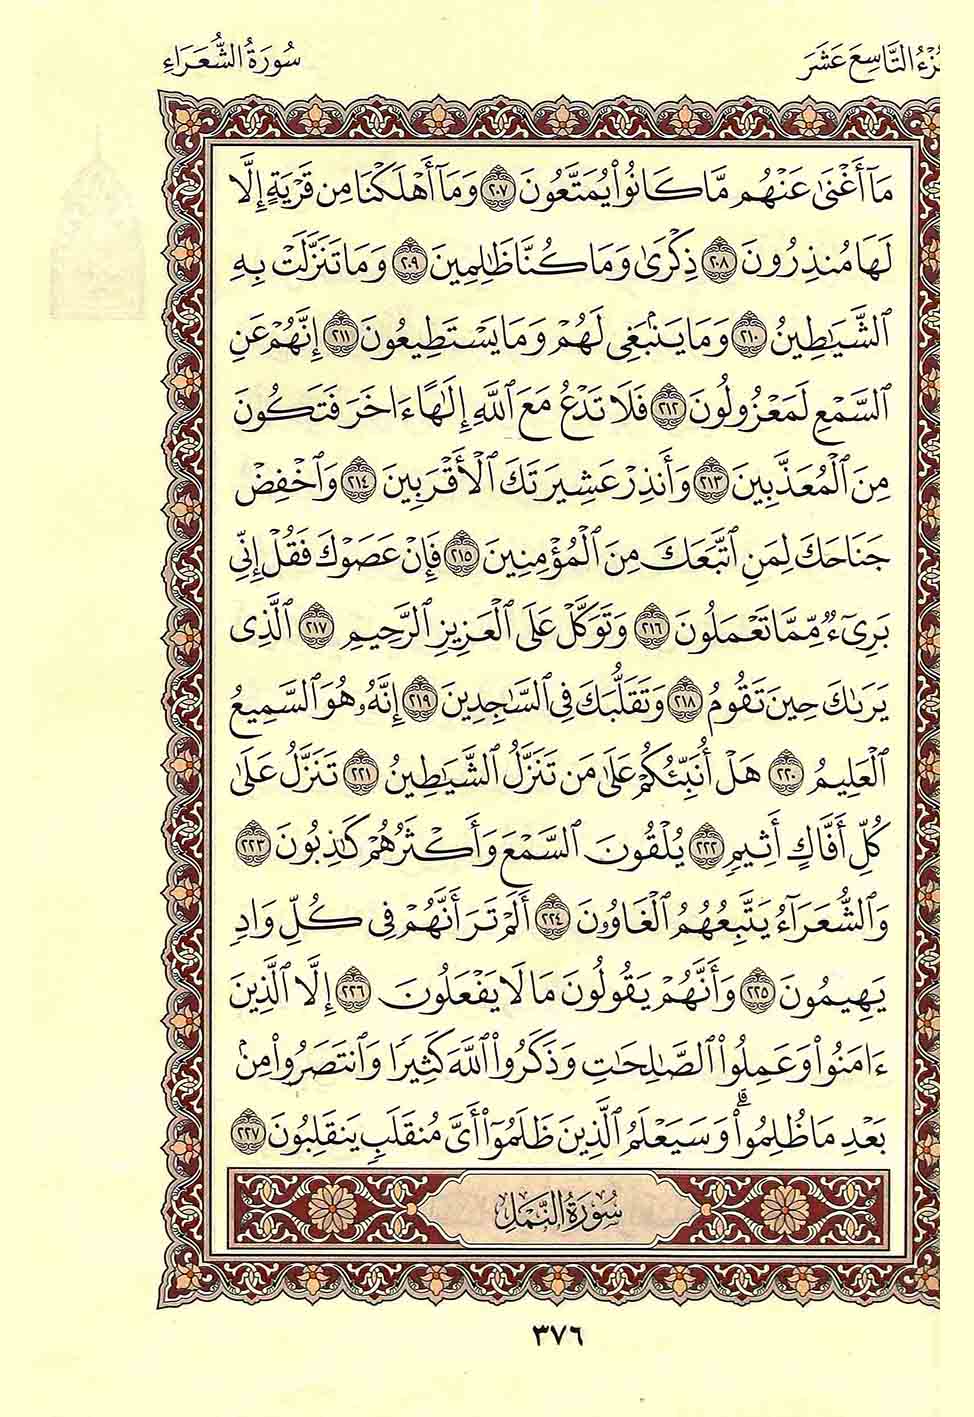 الجزء التاسع عشر
سُورَةُ الشُّعَرَاءِ
مَآ أَغْنَىٰ عَنْهُم مَّا كَانُوا۟ يُمَتَّعُونَ ٢٠٧ وَمَآ أَهْلَكْنَا مِن قَرْيَةٍ إِلَّا
لَهَا مُنذِرُونَ ٢٠٨ ذِكْرَىٰ وَمَا كُنَّا ظَـٰلِمِينَ ٢٠٩ وَمَا تَنَزَّلَتْ بِهِ
ٱلشَّيَـٰطِينُ ٢١٠ وَمَا يَنۢبَغِى لَهُمْ وَمَا يَسْتَطِيعُونَ ٢١١ إِنَّهُمْ عَنِ
ٱلسَّمْعِ لَمَعْزُولُونَ ٢١٢ فَلَا تَدْعُ مَعَ ٱللَّهِ إِلَـٰهًا ءَاخَرَ فَتَكُونَ
مِنَ ٱلْمُعَذَّبِينَ ٢١٣ وَأَنذِرْ عَشِيرَتَكَ ٱلْأَقْرَبِينَ ٢١٤ وَٱخْفِضْ
جَنَاحَكَ لِمَنِ ٱتَّبَعَكَ مِنَ ٱلْمُؤْمِنِينَ ٢١٥ فَإِنْ عَصَوْكَ فَقُلْ إِنِّى
بَرِىٓءٌ مِّمَّا تَعْمَلُونَ ٢١٦ وَتَوَكَّلْ عَلَى ٱلْعَزِيزِ ٱلرَّحِيمِ ٢١٧ ٱلَّذِى
يَرَىٰكَ حِينَ تَقُومُ ٢١٨ وَتَقَلُّبَكَ فِى ٱلسَّـٰجِدِينَ ٢١٩ إِنَّهُۥ هُوَ ٱلسَّمِيعُ
ٱلْعَلِيمُ ٢٢٠ هَلْ أُنَبِّئُكُمْ عَلَىٰ مَن تَنَزَّلُ ٱلشَّيَـٰطِينُ ٢٢١ تَنَزَّلُ عَلَىٰ
كُلِّ أَفَّاكٍ أَثِيمٍ ٢٢٢ يُلْقُونَ ٱلسَّمْعَ وَأَكْثَرُهُمْ كَـٰذِبُونَ ٢٢٣
وَٱلشُّعَرَآءُ يَتَّبِعُهُمُ ٱلْغَاوُۥنَ ٢٢٤ أَلَمْ تَرَ أَنَّهُمْ فِى كُلِّ وَادٍ
يَهِيمُونَ ٢٢٥ وَأَنَّهُمْ يَقُولُونَ مَا لَا يَفْعَلُونَ ٢٢٦ إِلَّا ٱلَّذِينَ
ءَامَنُوا۟ وَعَمِلُوا۟ ٱلصَّـٰلِحَـٰتِ وَذَكَرُوا۟ ٱللَّهَ كَثِيرًا وَٱنتَصَرُوا۟ مِنۢ
بَعْدِ مَا ظُلِمُوا۟ ۗ وَسَيَعْلَمُ ٱلَّذِينَ ظَلَمُوٓا۟ أَىَّ مُنقَلَبٍ يَنقَلِبُونَ ٢٢٧
سُورَةُ النَّمْلِ
٣٧٦